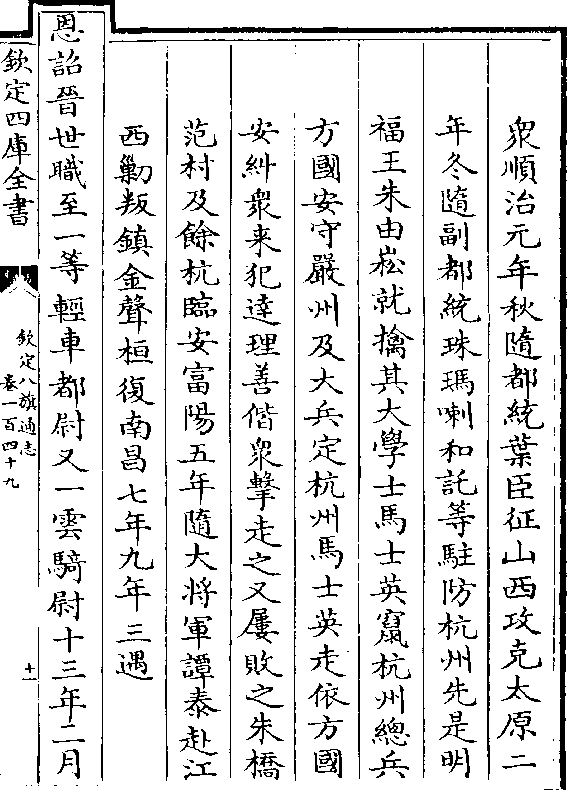 衆順治元年秋隨都統葉臣征山西攻克太原二
年冬隨副都統珠瑪喇和託等駐防杭州先是明
福王朱由崧就擒其大學士馬士英竄杭州總兵
方國安守嚴州及大兵定杭州馬士英走依方國
安糾衆来犯達理善偕衆擊走之又屢敗之朱橋
范村及餘杭臨安富陽五年隨大將軍譚泰赴江
西勦叛鎮金聲桓復南昌七年九年三遇
恩詔晉世職至一等輕車都尉又一雲騎尉十三年二月
欽定四庫全書
欽定八旗通志
卷一百四十九
十一